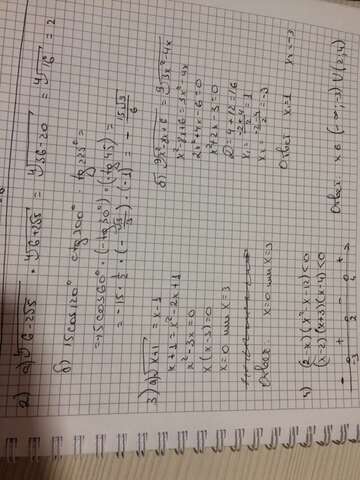 2) а) ⁴√6-2√5 · ⁴√6+2√5 = ⁴√36-20 = ⁴√16 = 2
б) 15cos120° ctg300° tg225° =
= -15cos60° · (-tg30°) · (-tg45) =
= -15 · 1/2 · (-√3/3) · (-1) = - 15√3/6
3) а) √x+1 = x-1
x+1 = x²-2x+1
x²-3x=0
x(x-3)=0
x=0 или x=3
Ответ. x=0 или x=3
x²-2x+6 = 3x²-4x
x²+2x-3=0
D=4+12=16
x₁ = -2+4/2 = 1
x₂ = -2-4/2 = -3
Ответ x₁=1 x₂=-3
4) (2-x)(x²-x-12)<0
(x-2)(x+3)(x-4)
- + - +
-3 2 4
Ответ x∈(-∞;-3)∪(2;4)